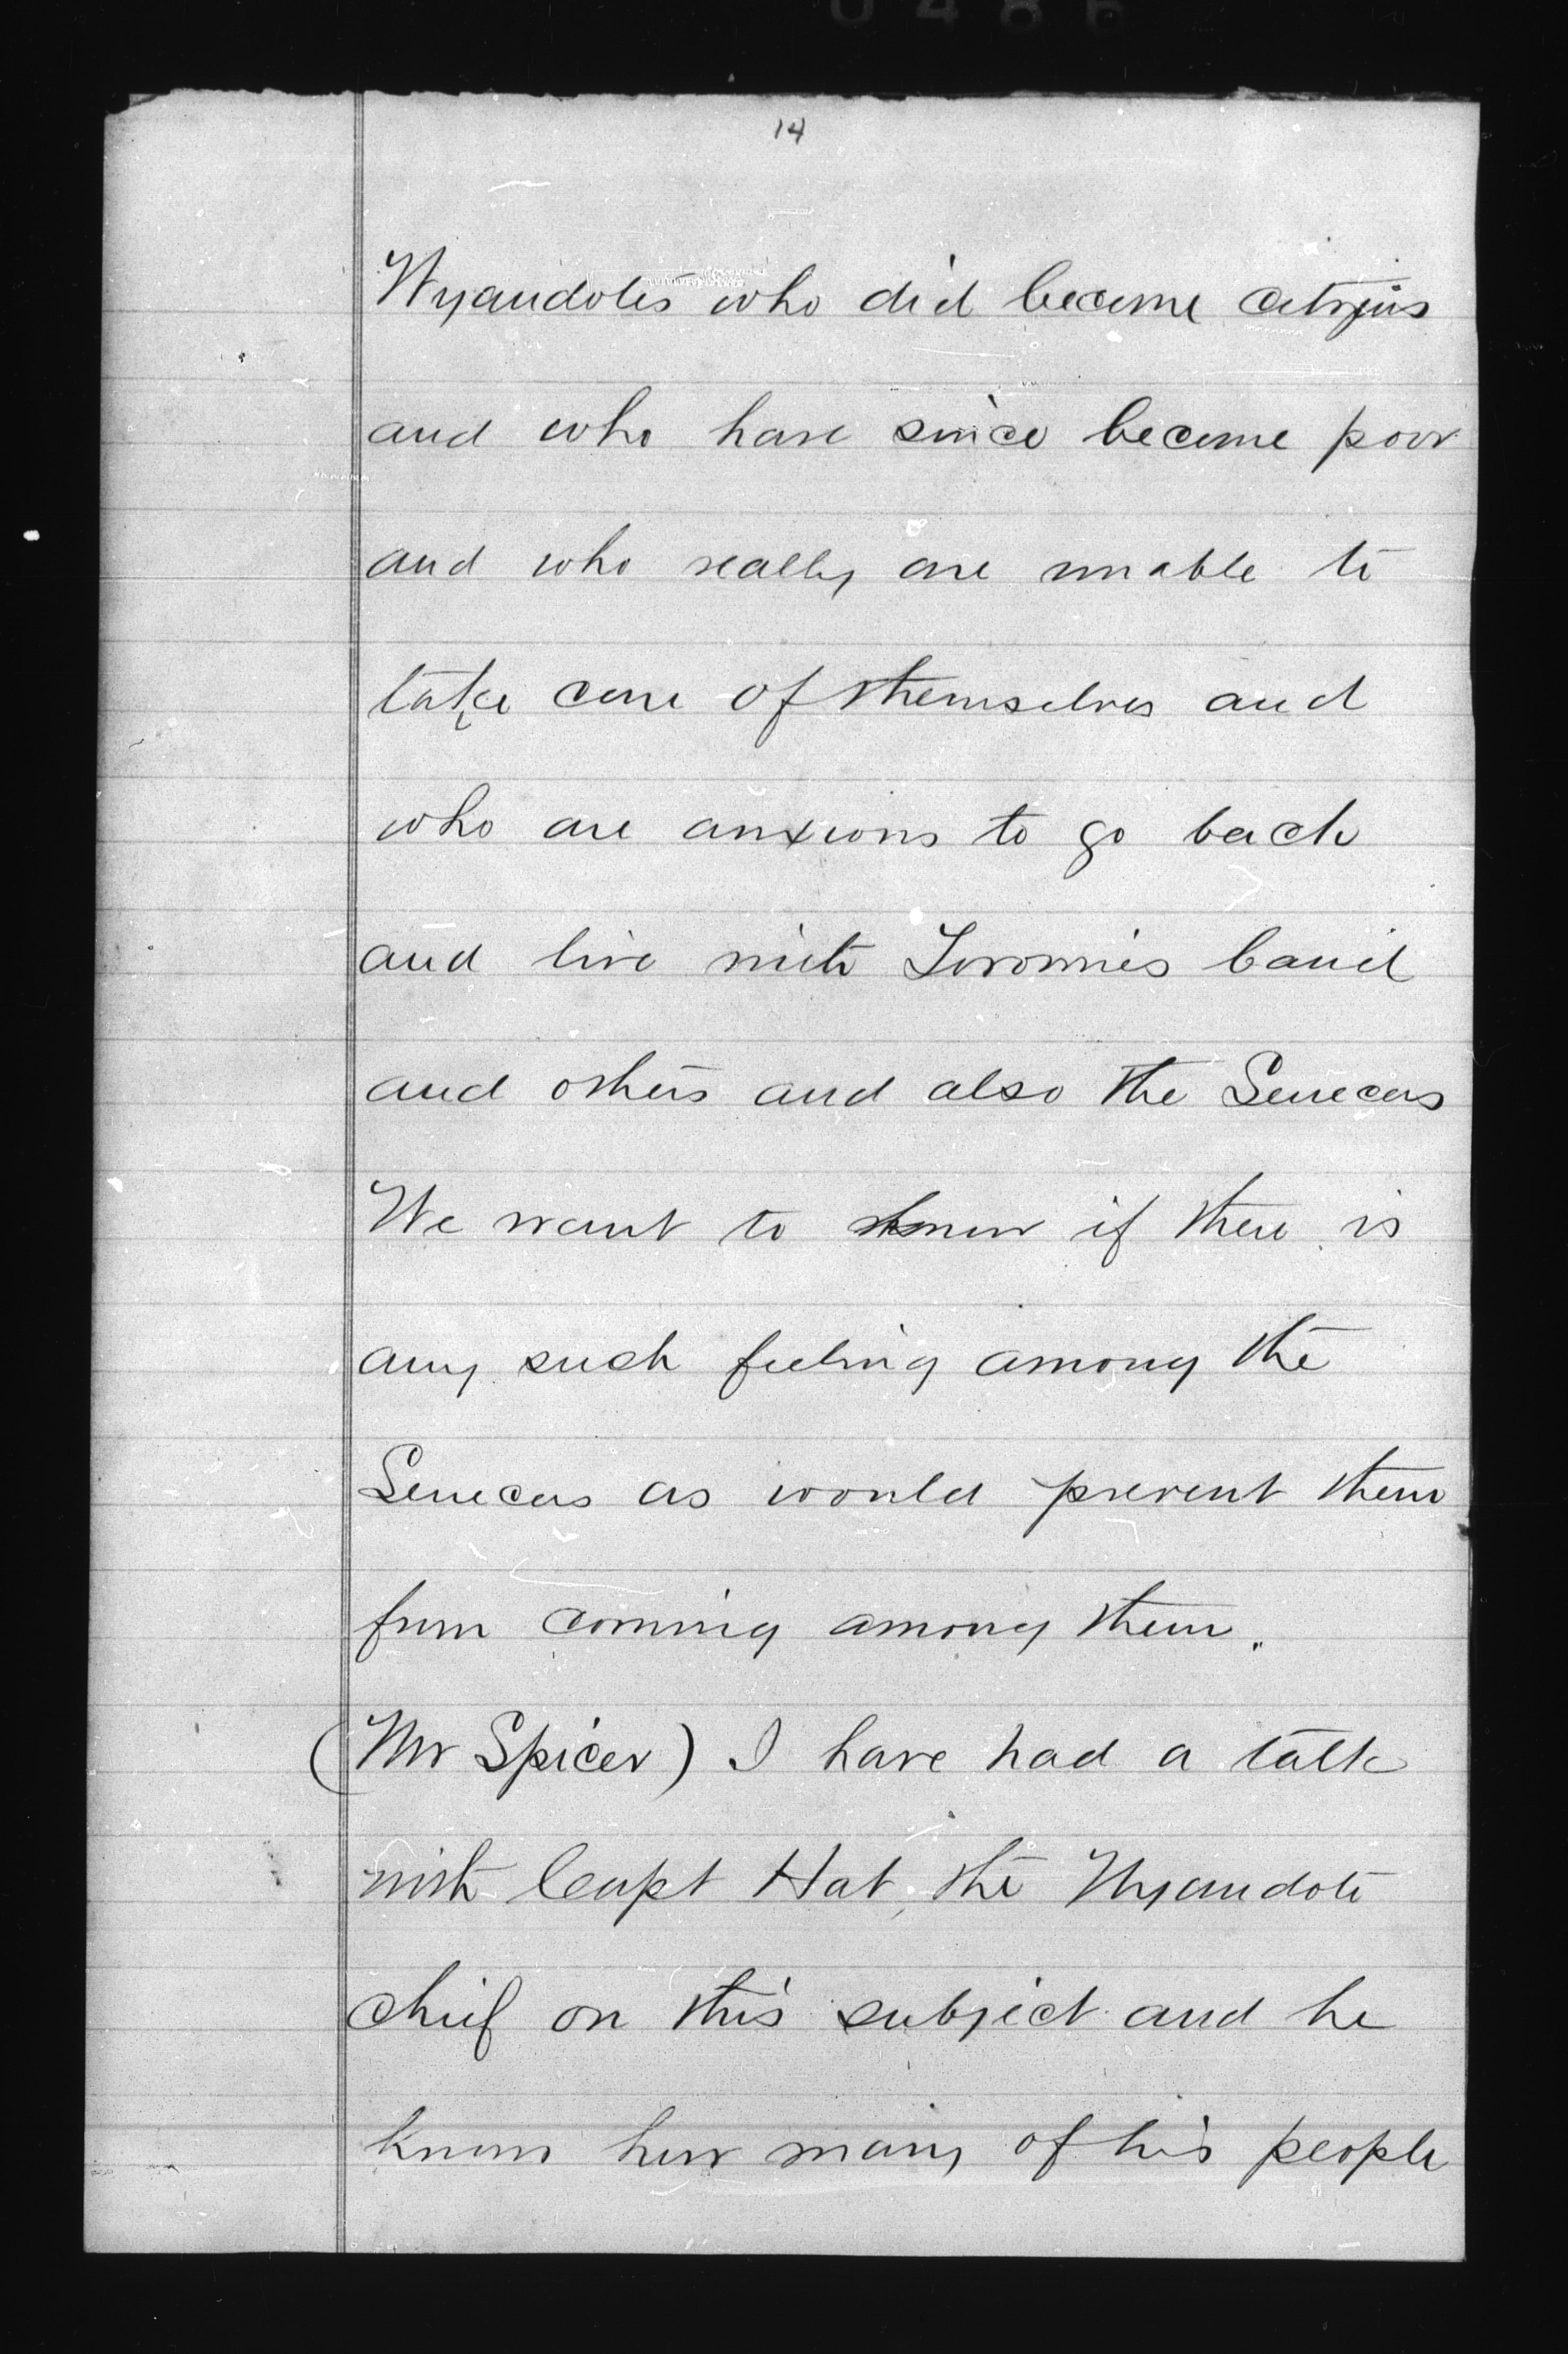 0486
14
Wyandotes who did become citizens
and who have since become poor
and who really are unable to
take care of themselves and
who are anxious to go back
and live with band
and others and also the Senecas
We want to know if there is
any such feeling among the
Senecas as would prevent them
from coming among them.
(Mr Spicer) I have had a talk
with Capt Hat, the Wyandote
chief on this subject and he
knows how many of his people